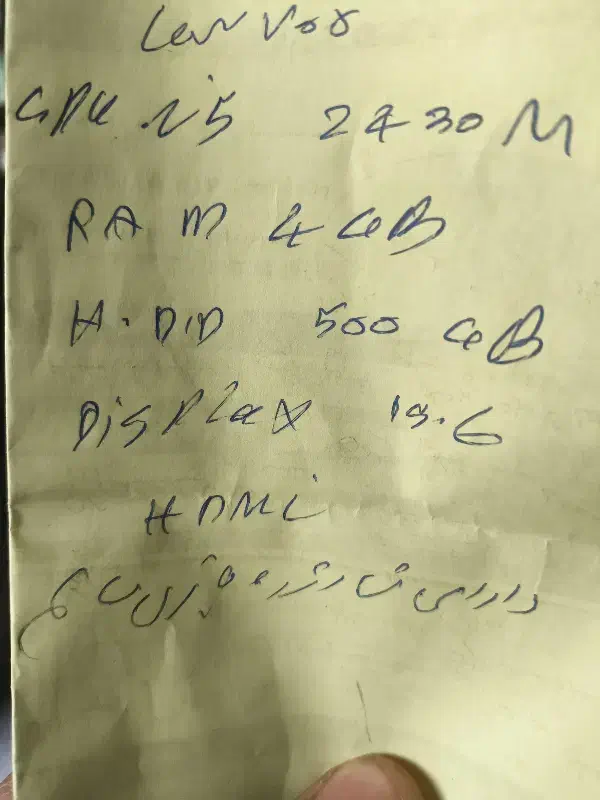 Lenvor
CPU i5 2430 M
RAM 4 GB
H.D.D 500 GB
Display 15.6
HDMi
دارای شارژر